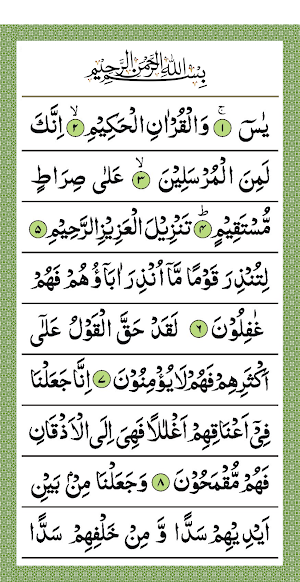 بِسْمِ اللهِ الرَّحْمٰنِ الرَّحِيْمِ
يٰسٓ ۚ ﴿١﴾ وَالْقُرْاٰنِ الْحَكِيْمِ ۙ ﴿٢﴾ اِنَّكَ
لَمِنَ الْمُرْسَلِيْنَ ۙ ﴿٣﴾ عَلٰى صِرَاطٍ
مُّسْتَقِيْمٍ ؕ ﴿٤﴾ تَنْزِيْلَ الْعَزِيْزِ الرَّحِيْمِ ۙ ﴿٥﴾
لِتُنْذِرَ قَوْمًا مَّاۤ اُنْذِرَ اٰبَآؤُهُمْ فَهُمْ
غٰفِلُوْنَ ﴿٦﴾ لَقَدْ حَقَّ الْقَوْلُ عَلٰۤى
اَكْثَرِهِمْ فَهُمْ لَا يُؤْمِنُوْنَ ﴿٧﴾ اِنَّا جَعَلْنَا
فِيْۤ اَعْنَاقِهِمْ اَغْلٰلًا فَهِيَ اِلَى الْاَذْقَانِ
فَهُمْ مُّقْمَحُوْنَ ﴿٨﴾ وَجَعَلْنَا مِنْۢ بَيْنِ
اَيْدِيْهِمْ سَدًّا وَّ مِنْ خَلْفِهِمْ سَدًّا